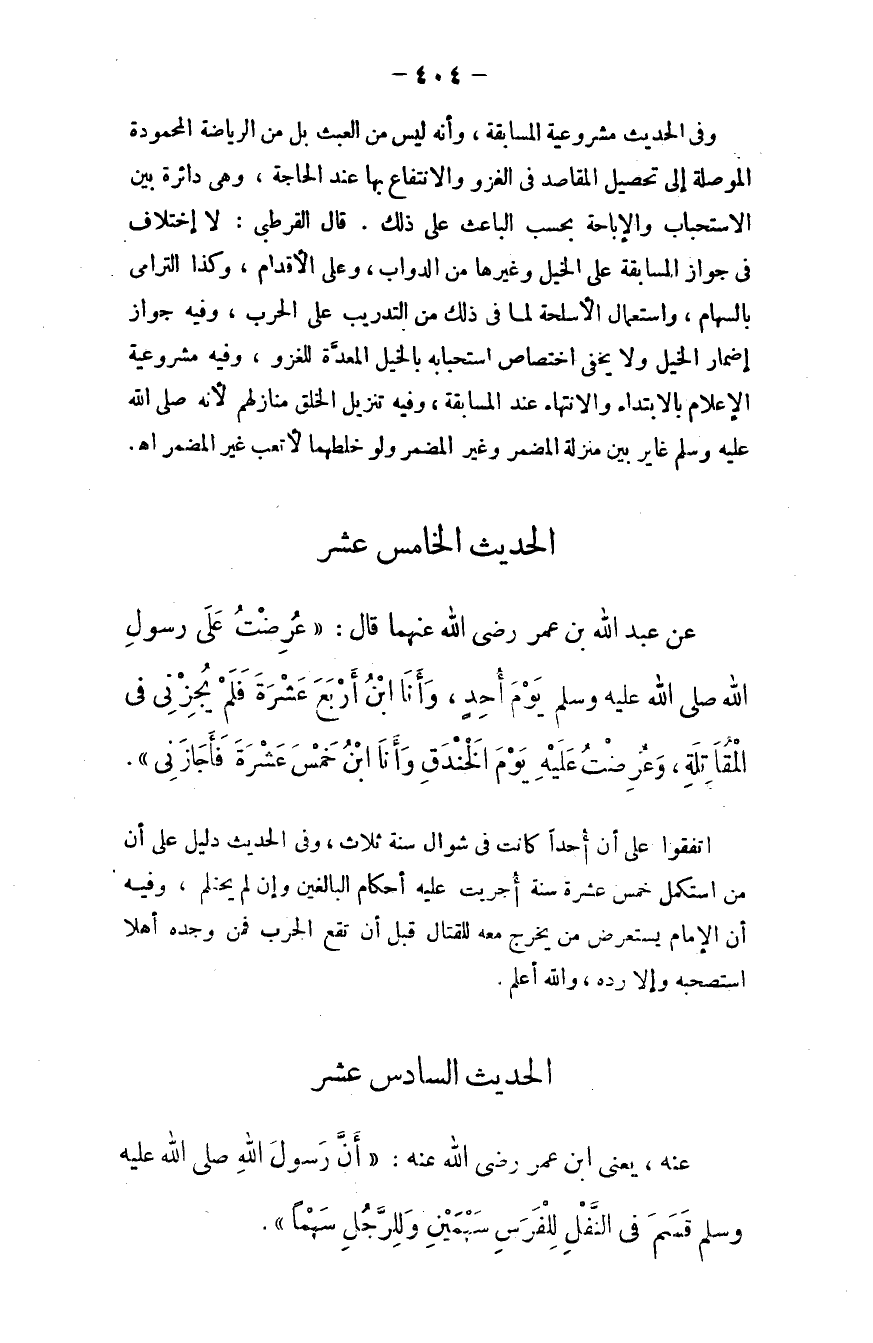 – ٤٠٤ –
وفى الحديث مشروعية المسابقة ، وأنه ليس من العبث بل من الرياضة المحمودة
الموصلة إلى تحصيل المقاصد فى الغزو والانتفاع بها عند الحاجة ، وهى دائرة بين
الاستحباب والإباحة بحسب الباعث على ذلك . قال القرطبى : لا إختلاف
فى جواز المسابقة على الخيل وغيرها من الدواب ، وعلى الأقدام ، وكذا الترامى
بالسهام ، واستعمال الأسلحة لما فى ذلك من التدريب على الحرب ، وفيه جواز
إضمار الخيل ولا يخفى اختصاص استحبابه بالخيل المعدَّة للغزو ، وفيه مشروعية
الإعلام بالابتداء والانتهاء عند المسابقة ، وفيه تنزيل الخلق منازلهم لأنه صلى الله
عليه وسلم غاير بين منزلة المضمر وغير المضمر ولو خلطهما لأتعب غير المضمر اه‍.
الحديث الخامس عشر
عن عبد الله بن عمر رضى الله عنهما قال : « عُرِضْتُ عَلَى رسولِ
الله صلى الله عليه وسلم يَوْمَ أُحِدٍ ، وَأَنَا ابْنُ أَرْبَعَ عَشْرَةَ فَلَمْ يُجِزْنِى فى
الْمُقَاتِلَةِ ، وَعُرِضْتُ عَلَيْهِ يَوْمَ الْخَنْدَقِ وَأَنَا ابْنُ خَمْسَ عَشْرَةَ فَأَجَازَنِى » .
اتفقوا على أن أُحداً كانت فى شوال سنة ثلاث ، وفى الحديث دليل على أن
من استكمل خمس عشرة سنة أُجريت عليه أحكام البالغين وإن لم يحتلم ، وفيه
أن الإمام يستعرض من يخرج معه للقتال قبل أن تقع الحرب فمن وجده أهلا
استصحبه وإلا رده ، والله أعلم .
الحديث السادس عشر
عنه ، يعنى ابن عمر رضى الله عنه : « أَنَّ رَسولَ اللهِ صلى الله عليه
وسلم قَسَمَ فى النَّفْلِ لِلْفَرَسِ سَهْمَيْنِ وَلِلرَّجُلِ سَهْمًا » .